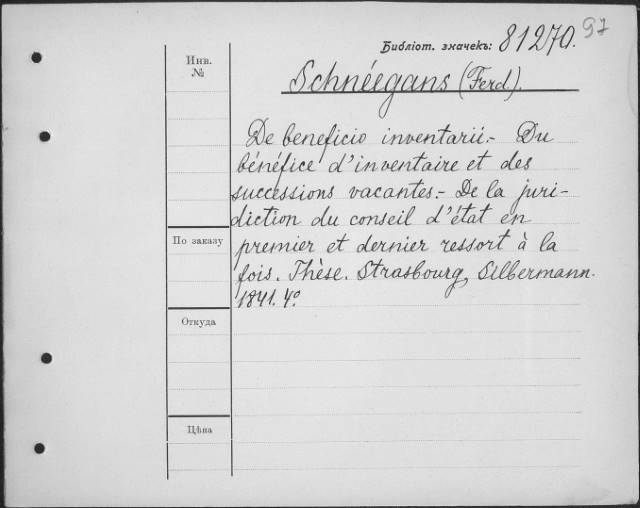 97
Библіот. значекъ: 81270.
Инв.
№
Schnéegans (Ferd).
De beneficio inventarii.- Du
bénéfice d'inventaire et des
successions vacantes.- De la juri-
diction du conseil d'état en
premier et dernier ressort à la
fois. Thèse. Strasbourg, Silbermann.
1841. 4º.
По заказу
Откуда
Цѣна